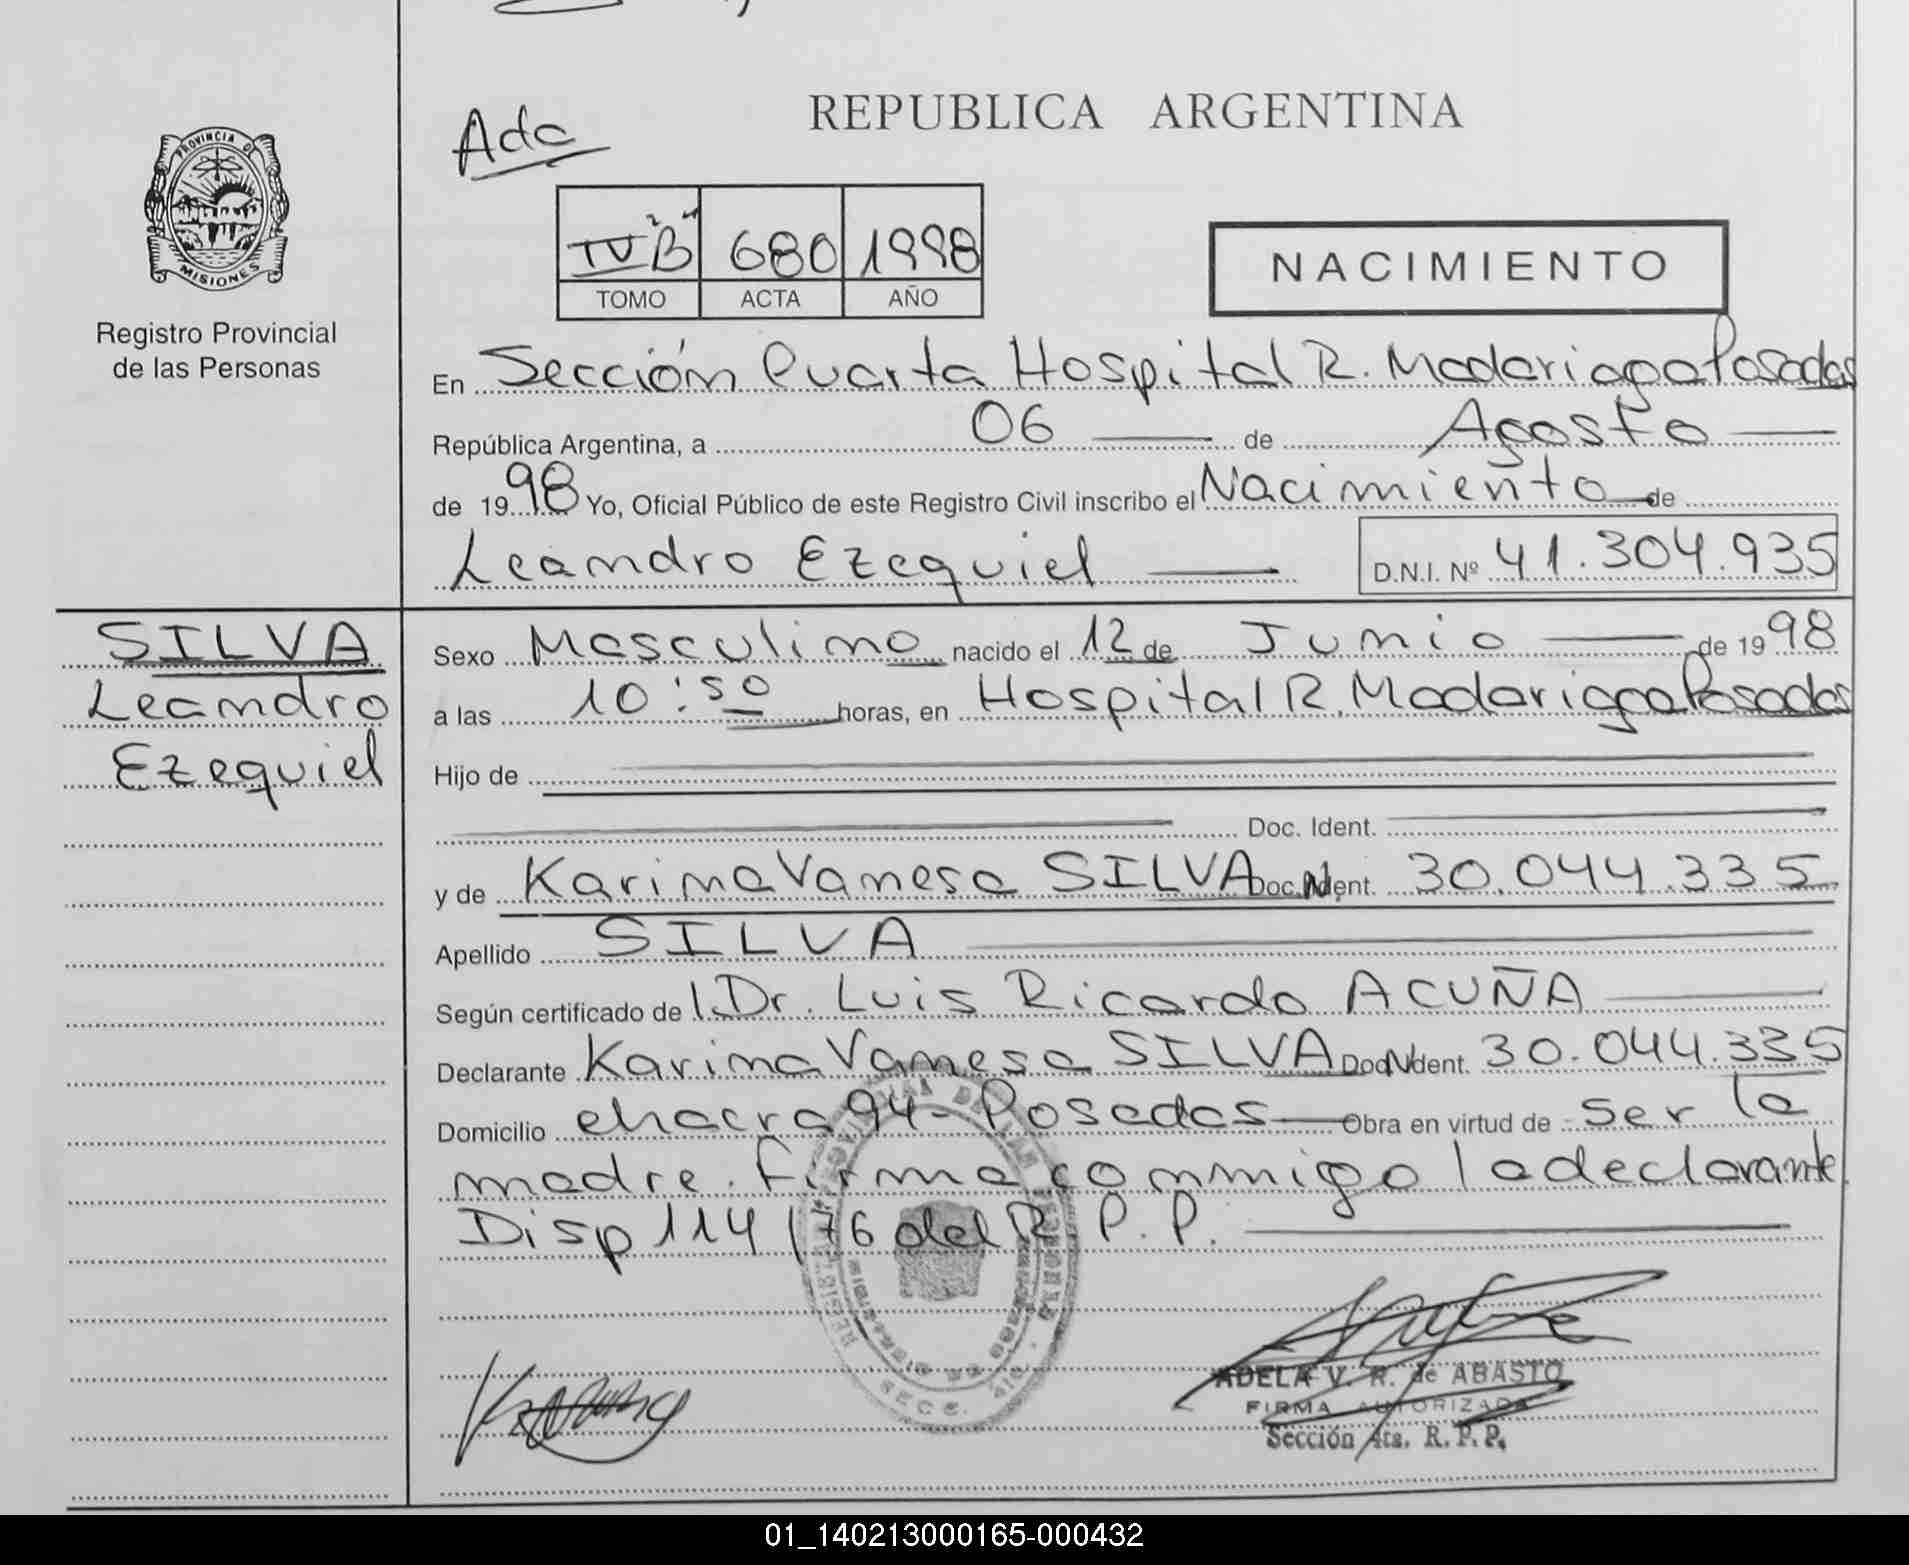 Ada
REPUBLICA ARGENTINA
PROVINCIA DE
MISIONES
Registro Provincial
de las Personas
IVB 680 1998
TOMO ACTA AÑO
NACIMIENTO
En Sección Cuarta Hospital R. Madariaga Posadas
República Argentina, a 06 de Agosto
de 1998 Yo, Oficial Público de este Registro Civil inscribo el Nacimiento de
Leandro Ezequiel D.N.I. Nº 41.304.935
SILVA
Leandro
Ezequiel
Sexo Masculino nacido el 12 de Junio de 1998
a las 10:50 horas, en Hospital R. Madariaga Posadas
Hijo de
Doc. Ident.
y de Karina Vanesa SILVA Doc. Ident. 30.044.335
Apellido SILVA
Según certificado de l Dr. Luis Ricardo ACUÑA
Declarante Karina Vanesa SILVA Doc. Ident. 30.044.335
Domicilio chacra 94 - Posadas Obra en virtud de ser la
madre. Firma conmigo la declarante
Disp 114/76 del R. P. P.
ADELA V. R. de ABASTO
FIRMA AUTORIZADA
Sección 4ta. R. P. P.
01_140213000165-000432